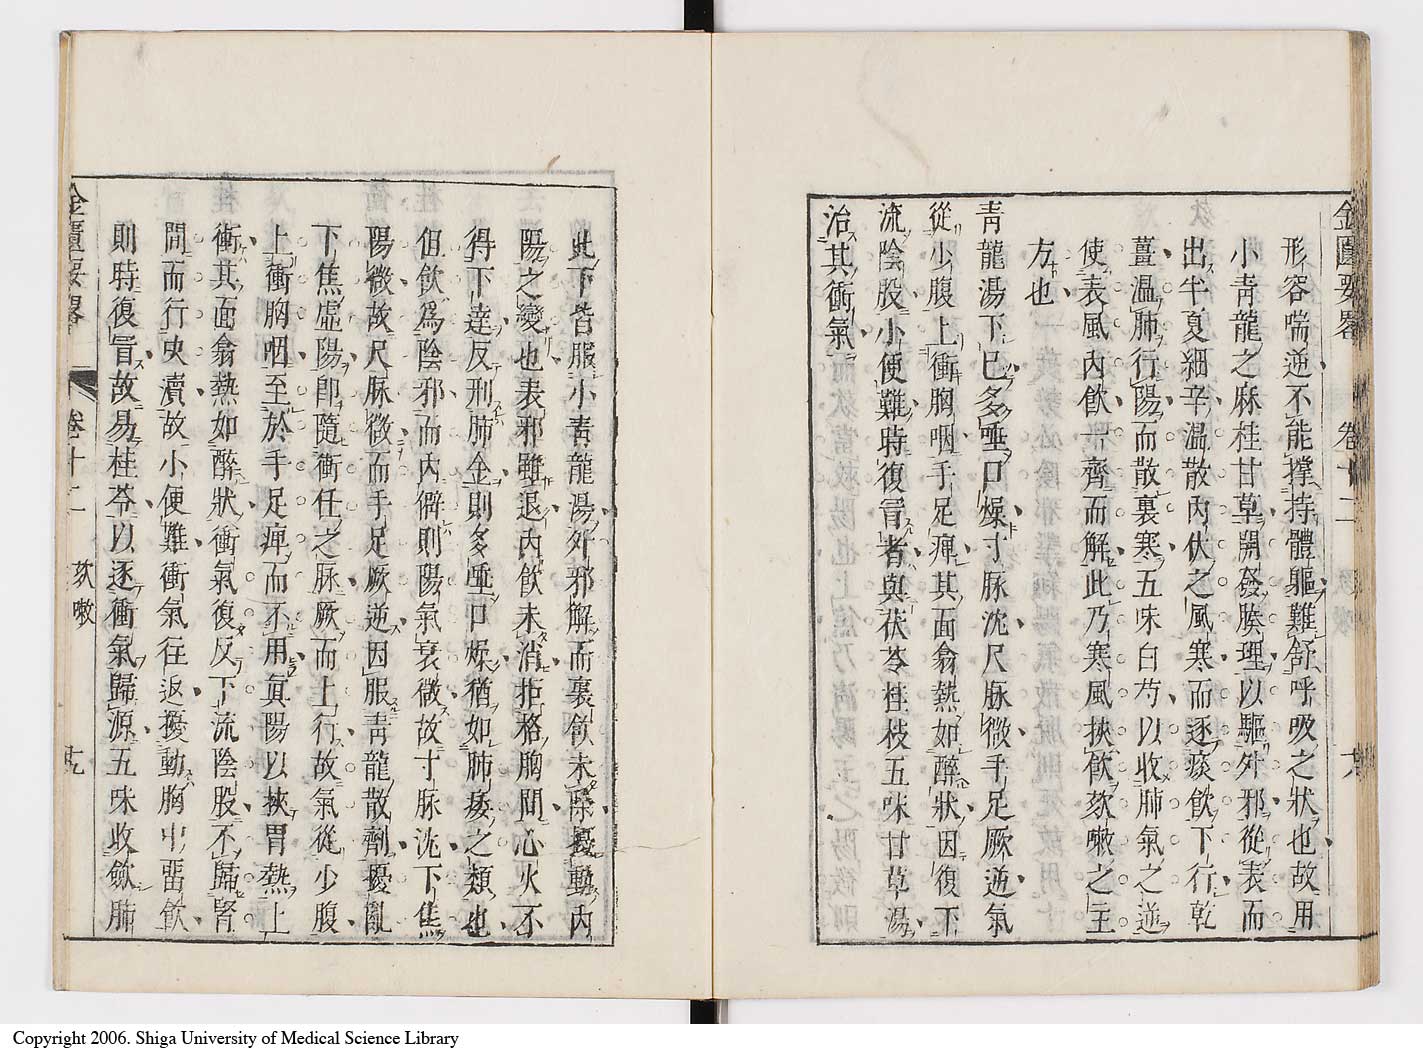 金匱要畧 卷十二 欬嗽 十八
形容喘逆不能撑持體軀難舒呼吸之狀也故用
小青龍之麻桂甘草開發腠理以驅外邪從表而
出半夏細辛温散内伏之風寒而逐痰飲下行乾
薑温肺行陽而散裏寒五味白芍以收肺氣之逆
使表風内飲一齊而解此乃寒風挾飲欬嗽之主
方也
青龍湯下已多唾口燥寸脉沈尺脉微手足厥逆氣
從少腹上衝胸咽手足痺其面翕熱如醉狀因復下
流陰股小便難時復冐者與茯苓桂枝五味甘草湯
治其衝氣
此下皆服小青龍湯外邪解而裏飲未除擾動内
陽之變也表邪雖退内飲未消拒格胸間心火不
得下達反刑肺金則多唾口燥猶如肺痿之類也
但飲為陰邪而内僻則陽氣衰微故寸脉沈下焦
陽微故尺脉微而手足厥逆因服青龍散劑擾亂
下焦虛陽卽隨衝任之脉厥而上行故氣從少腹
上衝胸咽至於手足痺而不用眞陽以挾胃熱上
衝其面翕熱如醉狀衝氣復反下流陰股不歸腎
間而行决瀆故小便難衝氣往返擾動胸中畱飲
則時復冐故易桂苓以逐衝氣歸源五味收歛肺
金匱要畧 卷十二 欬嗽 十九
Copyright 2006. Shiga University of Medical Science Library